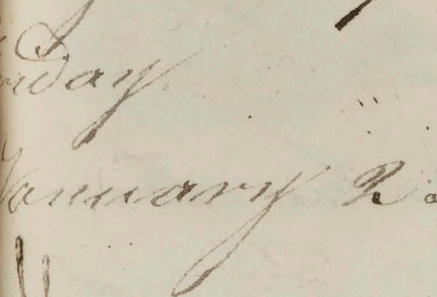 day
January 2